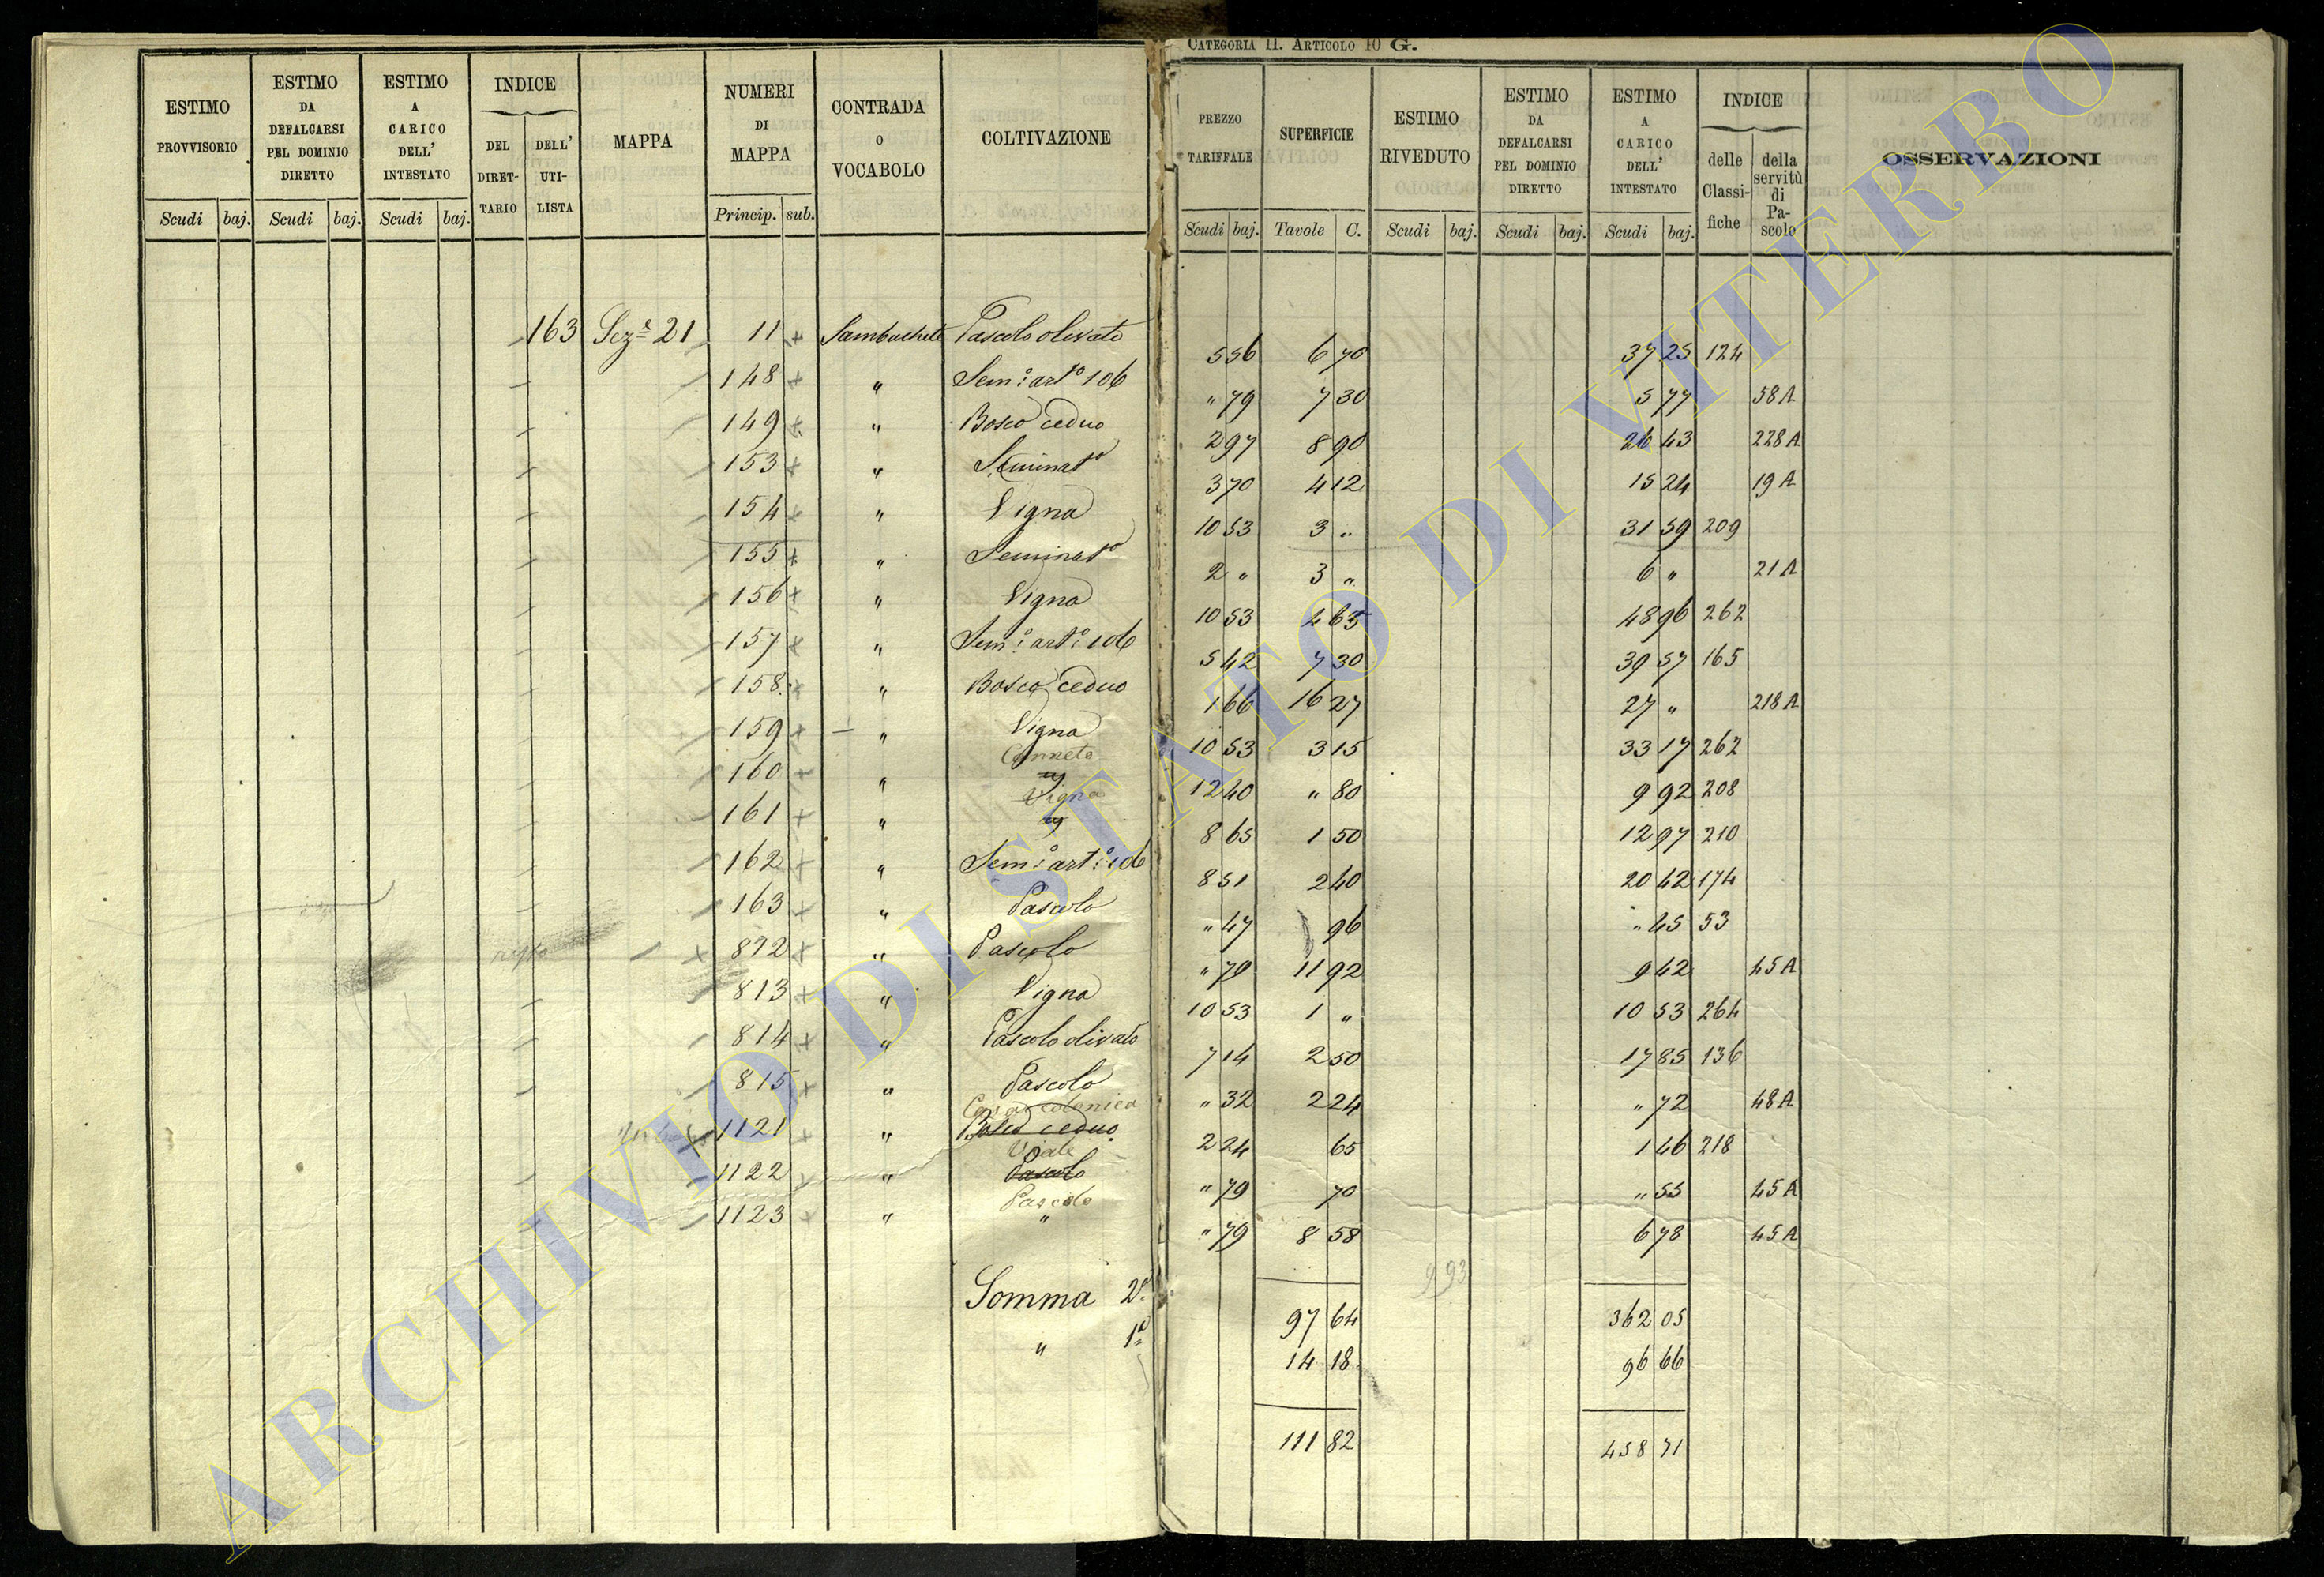 CATEGORIA II. ARTICOLO 10 G.
ESTIMO PROVVISORIO Scudi baj.
ESTIMO DA DEFALCARSI PEL DOMINIO DIRETTO Scudi baj.
ESTIMO A CARICO DELL' INTESTATO Scudi baj.
INDICE DEL DIRETTARIO DELL' UTILISTA
MAPPA
NUMERI DI MAPPA Princip. sub.
CONTRADA O VOCABOLO
COLTIVAZIONE
PREZZO TARIFFALE Scudi baj.
SUPERFICIE Tavole C.
ESTIMO RIVEDUTO Scudi baj.
ESTIMO DA DEFALCARSI PEL DOMINIO DIRETTO Scudi baj.
ESTIMO A CARICO DELL' INTESTATO Scudi baj.
INDICE delle Classifiche della servitù di Pascolo
OSSERVAZIONI
163 Sezᵉ 21 11 + Sambuchete Pascolo olivato 5 56 6 70 37 25 124
148 + " Sem:º artº 106 " 79 7 30 5 77 58 A
149 + " Bosco ceduo 2 97 8 90 26 43 228 A
153 + " Seminatº 3 70 4 12 15 24 19 A
154 + " Vigna 10 53 3 " 31 59 209
155 + " Seminatº 2 " 3 " 6 " 21 A
156 + " Vigna 10 53 4 65 48 96 262
157 + " Sem:º art:º 106 5 42 7 30 39 57 165
158 + " Bosco ceduo 1 66 16 27 27 " 218 A
159 + " Vigna 10 53 3 15 33 17 262
160 + " Canneto 12 40 " 80 9 92 208
161 + " Vigna 8 65 1 50 12 97 210
162 + " Sem:º art:º 106 8 51 2 40 20 42 174
163 + " Pascolo " 47 96 " 45 53
+ 872 + " Pascolo " 79 11 92 9 42 45 A
813 + " Vigna 10 53 1 " 10 53 264
814 + " Pascolo olivato 7 14 2 50 17 85 136
815 + " Pascolo " 32 2 24 " 72 48 A
Casa colonica
1121 + " Bosco ceduo 2 24 65 1 46 218
Viale
1122 + " Pascolo " 79 70 " 55 45 A
Pascolo
1123 + " " " 79 8 58 6 78 45 A
9 93
Somma 2ª 97 64 362 05
" 1ª 14 18 96 66
111 82 458 71
ARCHIVIO DI STATO DI VITERBO